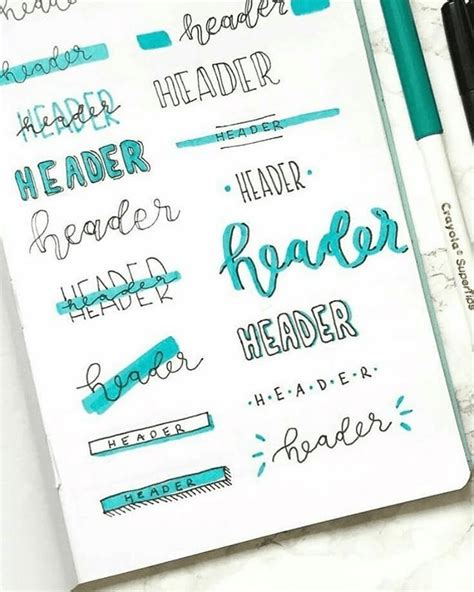 header
header
HEADER
header
HEADER
header
HEADER
header
header
HEADER
HEADER
header
HEADER
HEADER
HEADER
header
HEADER
H·E·A·D·E·R
header
Crayola SuperTips